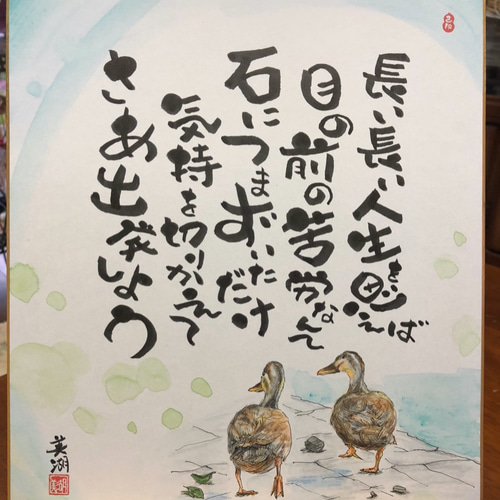 長い長い人生を思えば
目の前の苦労なんて
石につまずいただけ
気持を切りかえて
さあ出発しよう
美湖